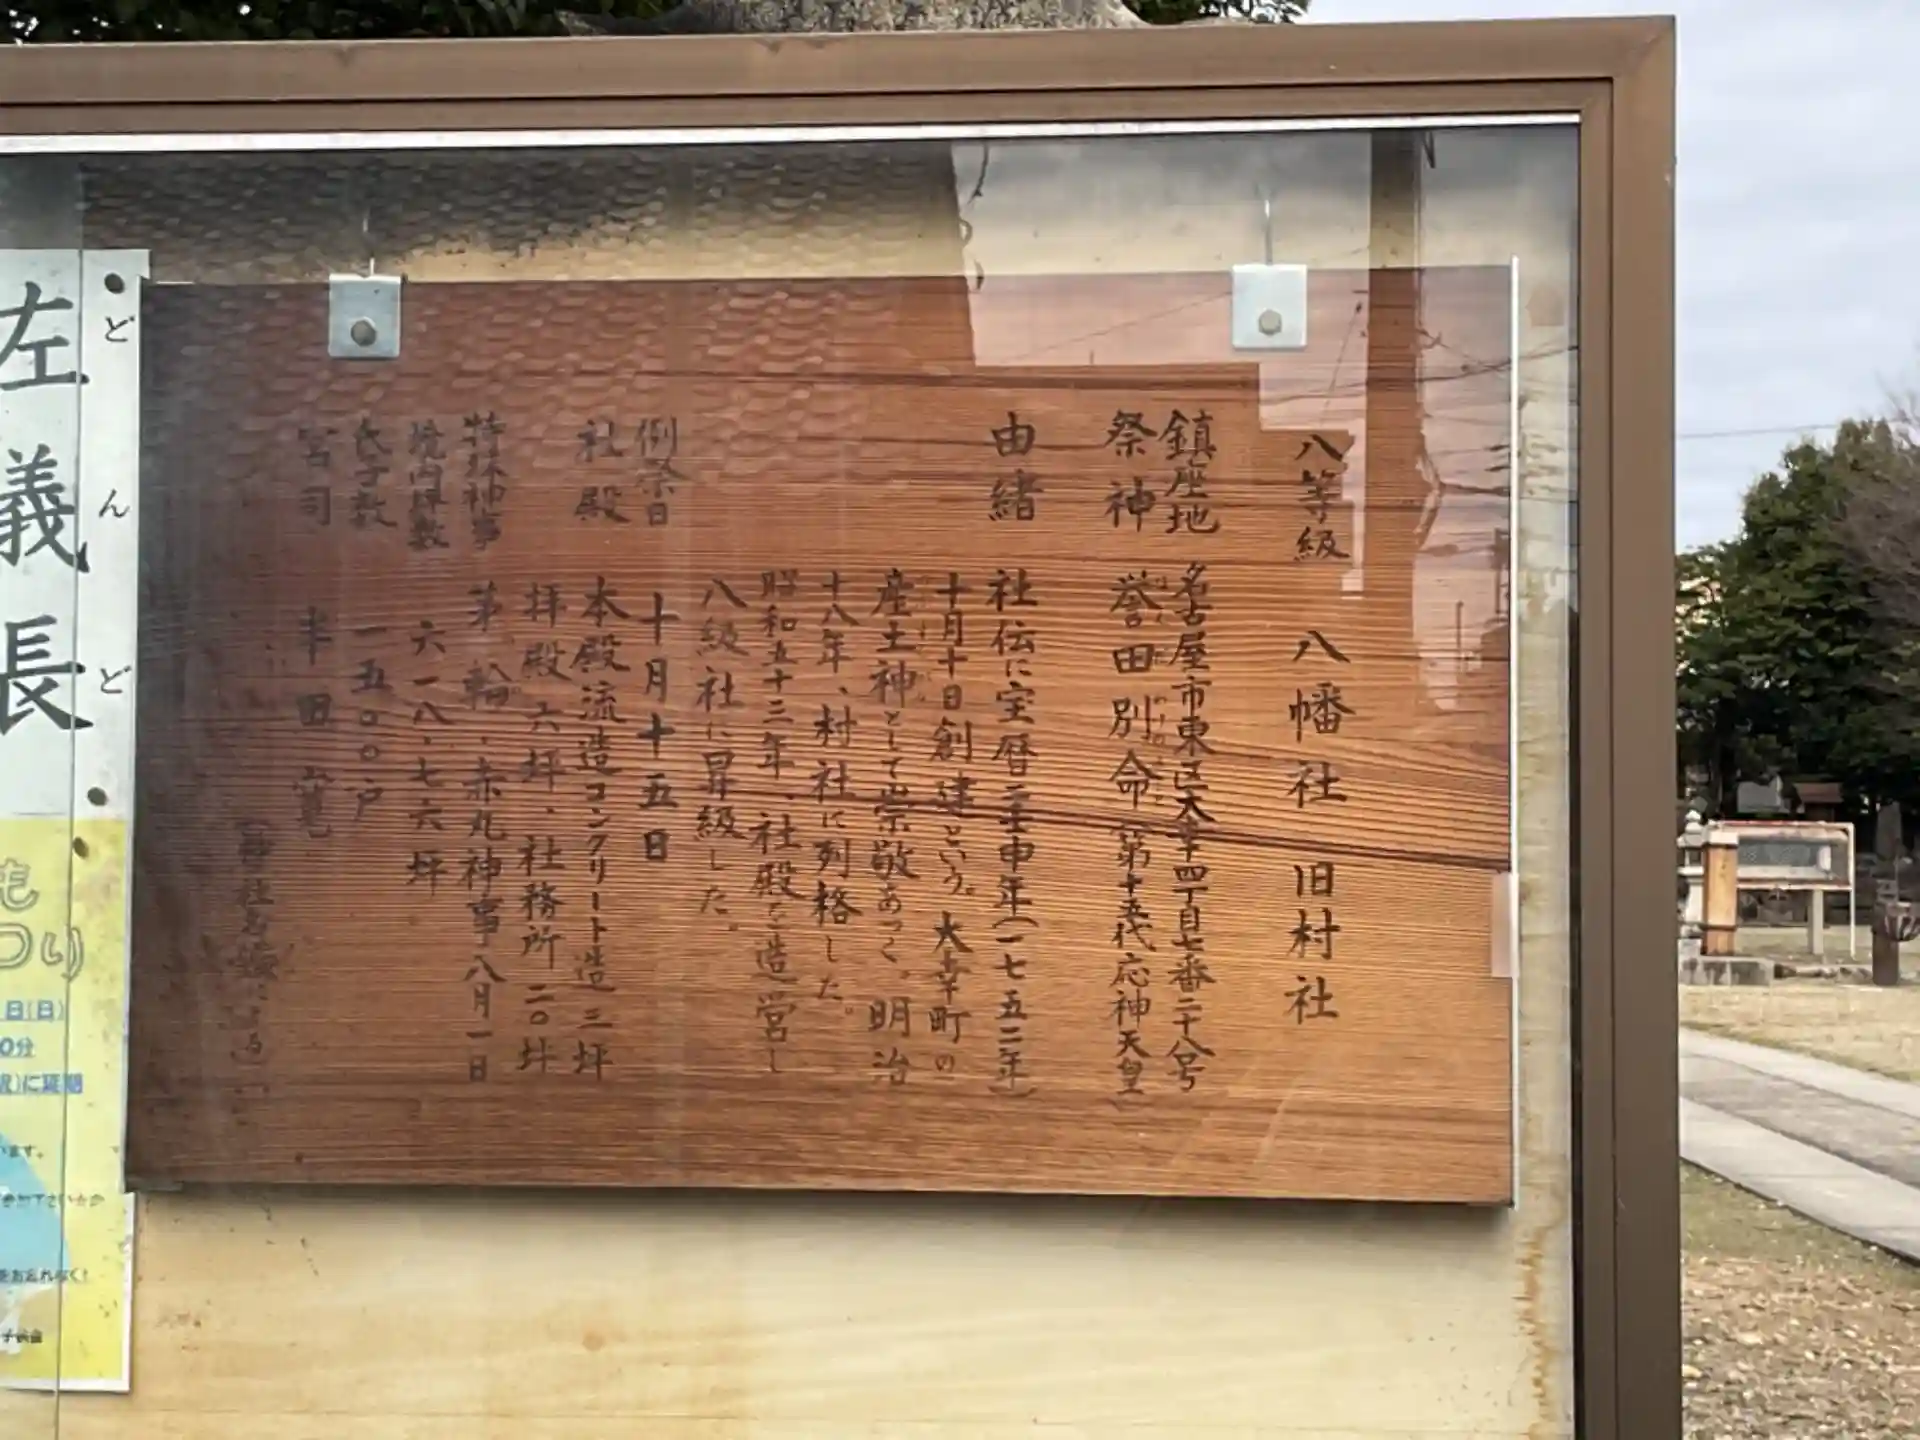 八等級 八幡社 旧村社
鎮座地 名古屋市東区大幸四丁目七番二十八号
祭神 誉田別命(第十五代応神天皇)
由緒 社伝に宝暦二壬申年(一七五二年)
十月十日創建という。大幸町の
産土神として崇敬あつく。明治
十八年、村社に列格した。
昭和五十三年、社殿を造営し
八級社に昇級した。
例祭日 十月十五日
社殿 本殿流造コンクリート造三坪
拝殿六坪、社務所二〇坪
特殊神事 茅輪・赤丸神事八月一日
境内坪数 六一八・七六坪
氏子数 一五〇〇戸
宮司 半田
(神社名鑑による)
どんど
左義長
つり
日(日)
0分
に延期
います。
をお忘れなく!